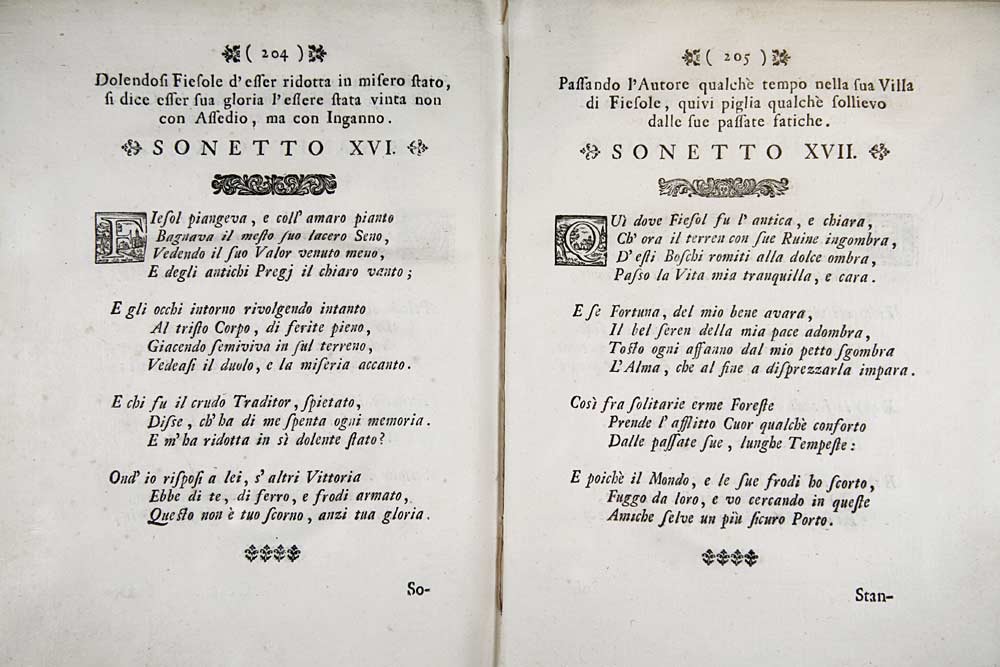 ( 204 )
Dolendosi Fiesole d'esser ridotta in misero stato,
si dice esser sua gloria l'essere stata vinta non
con Assedio, ma con Inganno.
SONETTO XVI.
FIesol piangeva, e coll' amaro pianto
Bagnava il mesto suo lacero Seno,
Vedendo il suo Valor venuto meno,
E degli antichi Pregj il chiaro vanto;
E gli occhi intorno rivolgendo intanto
Al tristo Corpo, di ferite pieno,
Giacendo semiviva in sul terreno,
Vedeasi il duolo, e la miseria accanto.
E chi fu il crudo Traditor, spietato,
Disse, ch'ha di me spenta ogni memoria.
E m'ha ridotta in sì dolente stato?
Ond' io risposi a lei, s'altri Vittoria
Ebbe di te, di ferro, e frodi armato,
Questo non è tuo scorno, anzi tua gloria.
So-
( 205 )
Passando l'Autore qualchè tempo nella sua Villa
di Fiesole, quivi piglia qualchè sollievo
dalle sue passate fatiche.
SONETTO XVII.
QUì dove Fiesol fu l'antica, e chiara,
Ch' ora il terren con sue Ruine ingombra,
D'esti Boschi romiti alla dolce ombra,
Passo la Vita mia tranquilla, e cara.
E se Fortuna, del mio bene avara,
Il bel seren della mia pace adombra,
Tosto ogni affanno dal mio petto sgombra
L'Alma, che al fine a disprezzarla impara.
Così fra solitarie erme Foreste
Prende l'afflitto Cuor qualchè conforto
Dalle passate sue, lunghe Tempeste:
E poichè il Mondo, e le sue frodi ho scorto,
Fuggo da loro, e vo cercando in queste
Amiche selve un più sicuro Porto.
Stan-